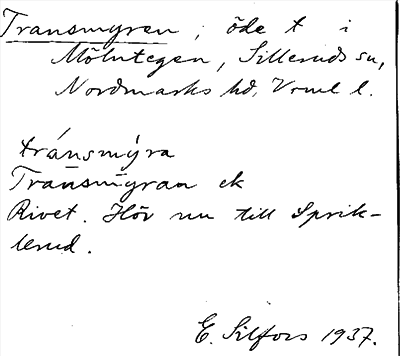 Transmyren, öde t i
Mölntegen, Silleruds sn,
Nordmarks hd, Vrml l.
tránsmy̍ra
Transmyran ek
Rivet. Hör nu till Sprik-
lerud.
E. Silfors 1937.